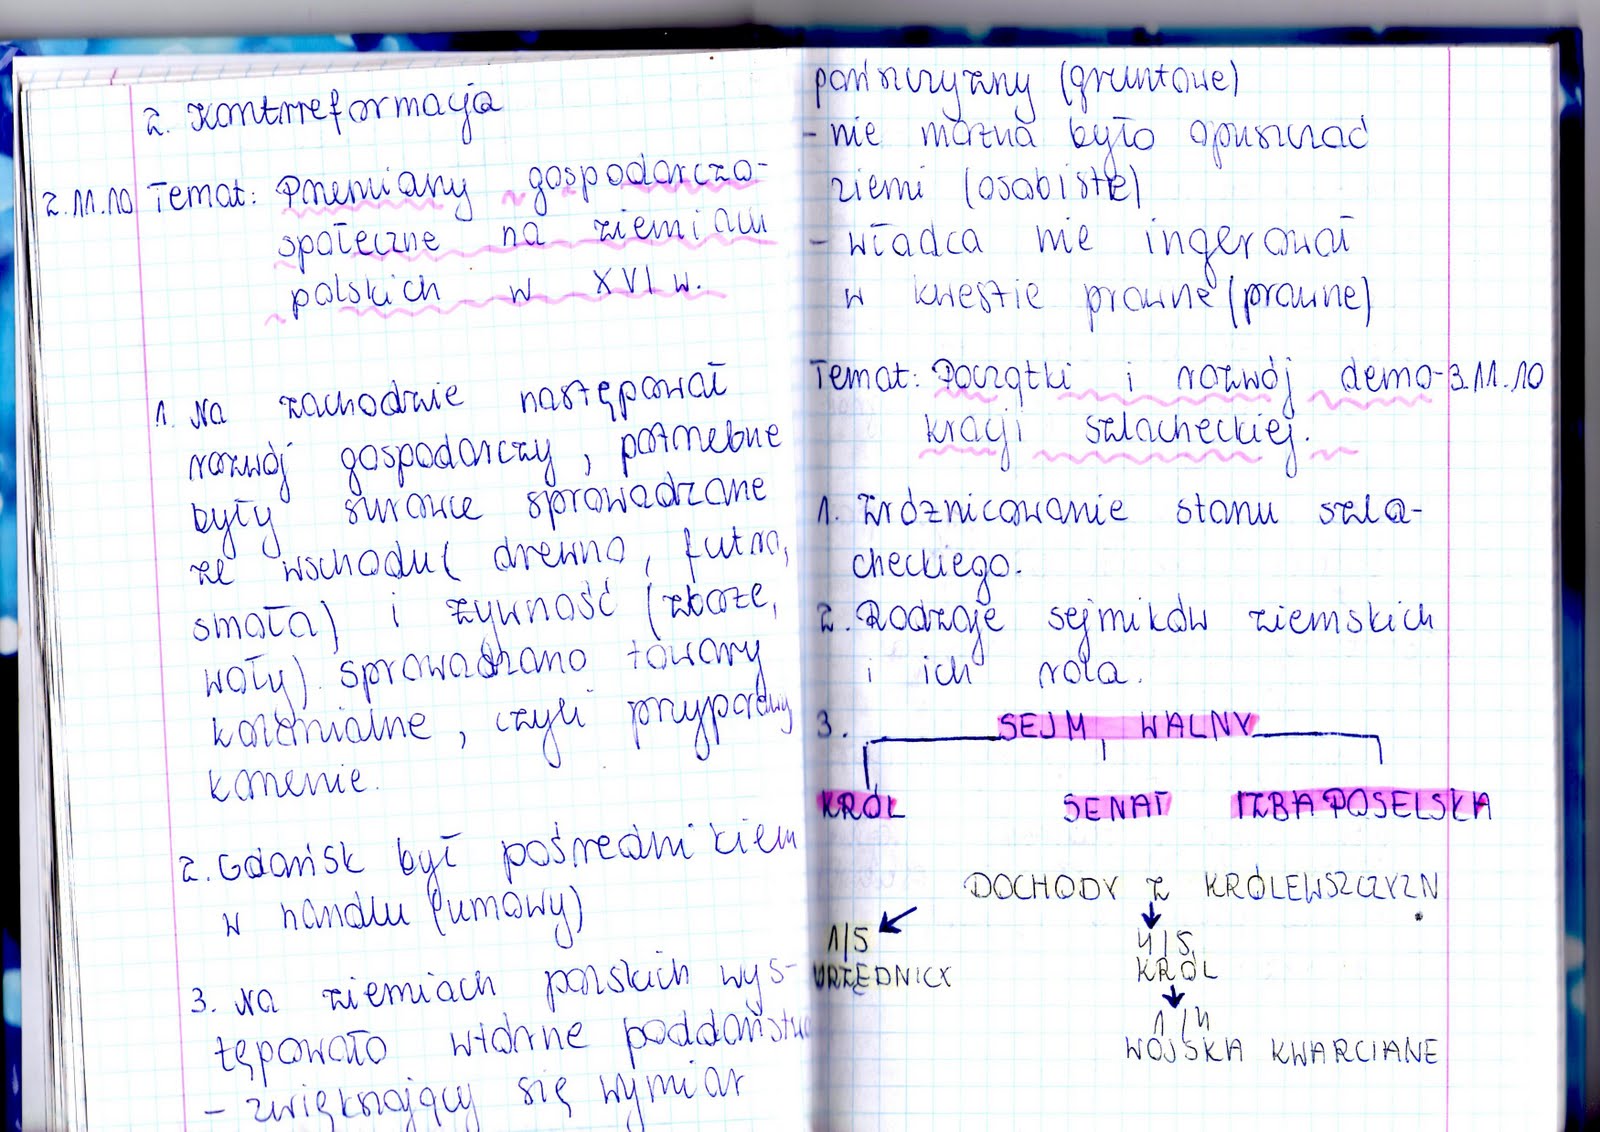 2. Kontrreformacja
2.11.10 Temat: Przemiany gospodarczo-
społeczne na ziemiach
polskich w XVI w.
1. Na zachodzie następował
rozwój gospodarczy, potrzebne
były surowce sprowadzane
ze wschodu( drewno, futra,
smoła) i żywność (zboże,
woły). sprowadzano towary
kolonialne, czyli przyprawy
korzenie.
2. Gdańsk był pośrednikiem
w handlu (umowy)
3. Na ziemiach polskich wys-
tępowało wtórne poddaństwo
- zwiększający się wymiar
pańszczyzny (gruntowe)
- nie można było opuszczać
ziemi (osobiste)
- władca nie ingerował
w kwestie prawne (prawne)
Temat: Początki i rozwój demo- 3.11.10
kracji szlacheckiej.
1. Zróżnicowanie stanu szla-
checkiego.
2. Rodzaje sejmików ziemskich
i ich rola.
3. SEJM WALNY
KRÓL SENAT IZBA POSELSKA
DOCHODY Z KRÓLEWSZCZYZN
1/5 4/5
URZĘDNICY KRÓL
1/4
WOJSKA KWARCIANE